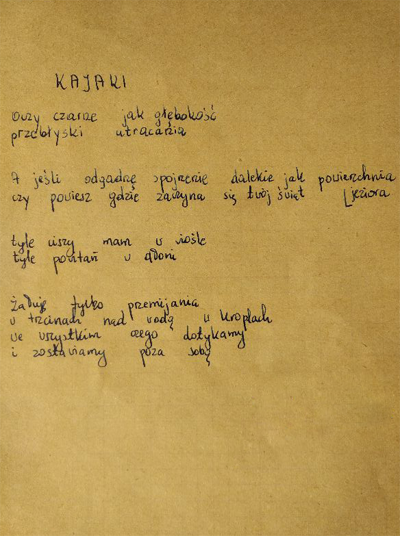 KAJAKI
Oczy czarne jak głębokość
przebłyski utracania
A jeśli odgadnę spojrzenie dalekie jak powierzchnia
jeziora
czy powiesz gdzie zaczyna się twój świat
tyle ciszy mam w wiośle
tyle pytań w dłoni
Żałuję tylko przemijania
w trzcinach nad wodą w kroplach
we wszystkim czego dotykamy
i zostawiamy poza sobą